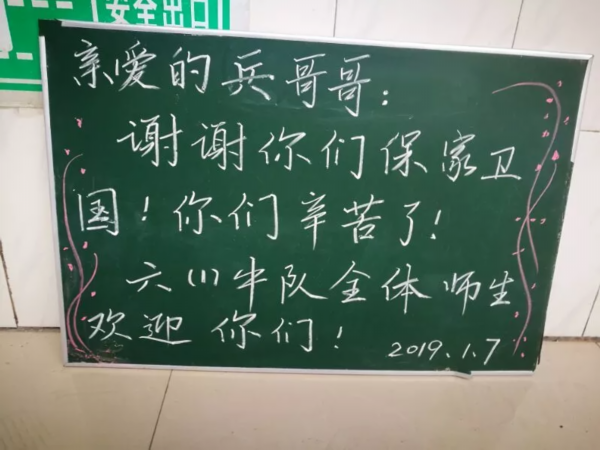 安全出口
亲爱的兵哥哥：
谢谢你们保家卫
国！你们辛苦了！
六(1)中队全体师生
欢迎你们！
2019.1.7